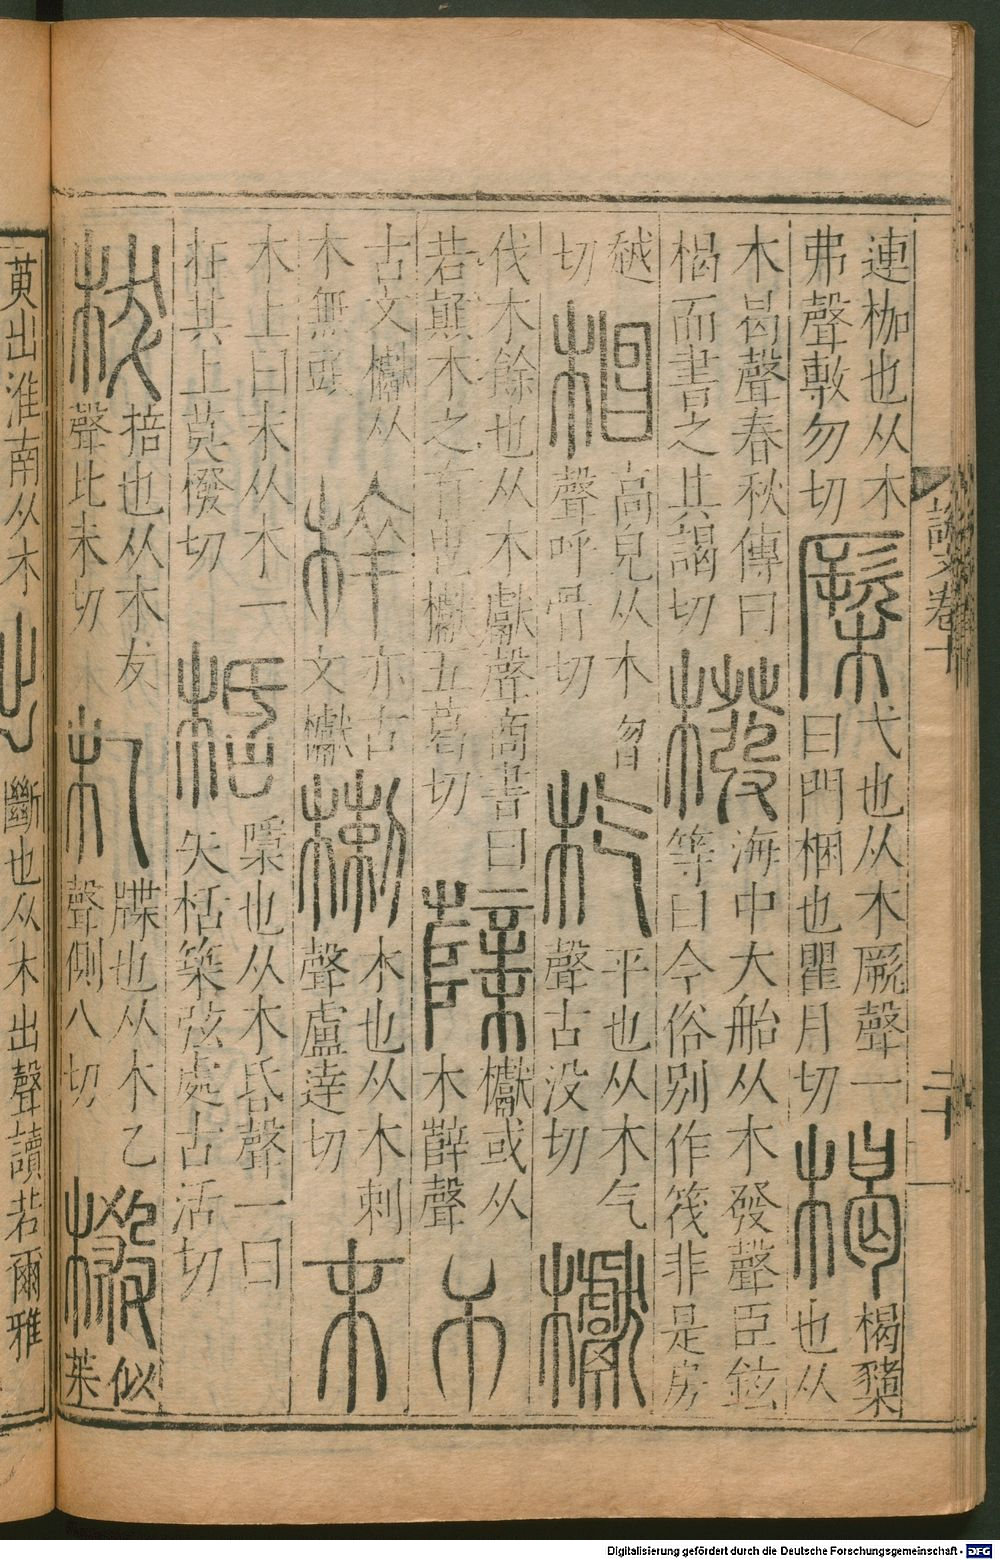 連枷也从木
弗聲敷勿切
橜
弋也从木厥聲一
曰門梱也瞿月切
楬
楬櫫
也从
木曷聲春秋傳曰
楬而書之其謁切
橃
海中大船从木發聲臣鉉
等曰今俗别作筏非是房
越
切
高皃从木曶
聲呼骨切
杚
平也从木气
聲古没切
𣡌
伐木餘也从木獻聲商書曰
若顚木之有㽕𣡌五葛切
櫱
𣡌或从
木辥聲
𣎴
古文𣡌从
木無頭
亦古
文𣡌
楋
木也从木剌
聲盧達切
末
木上曰末从木一
在其上莫撥切
桰
檃也从木昏聲一曰
矢栝築弦處古活切
柭
棓也从木犮
聲北末切
札
牒也从木乙
聲側八切
樧
似
茱
說文卷十
二十一
萸出淮南从木
斷也从木出聲讀若爾雅
Digitalisierung gefördert durch die Deutsche Forschungsgemeinschaft - DFG